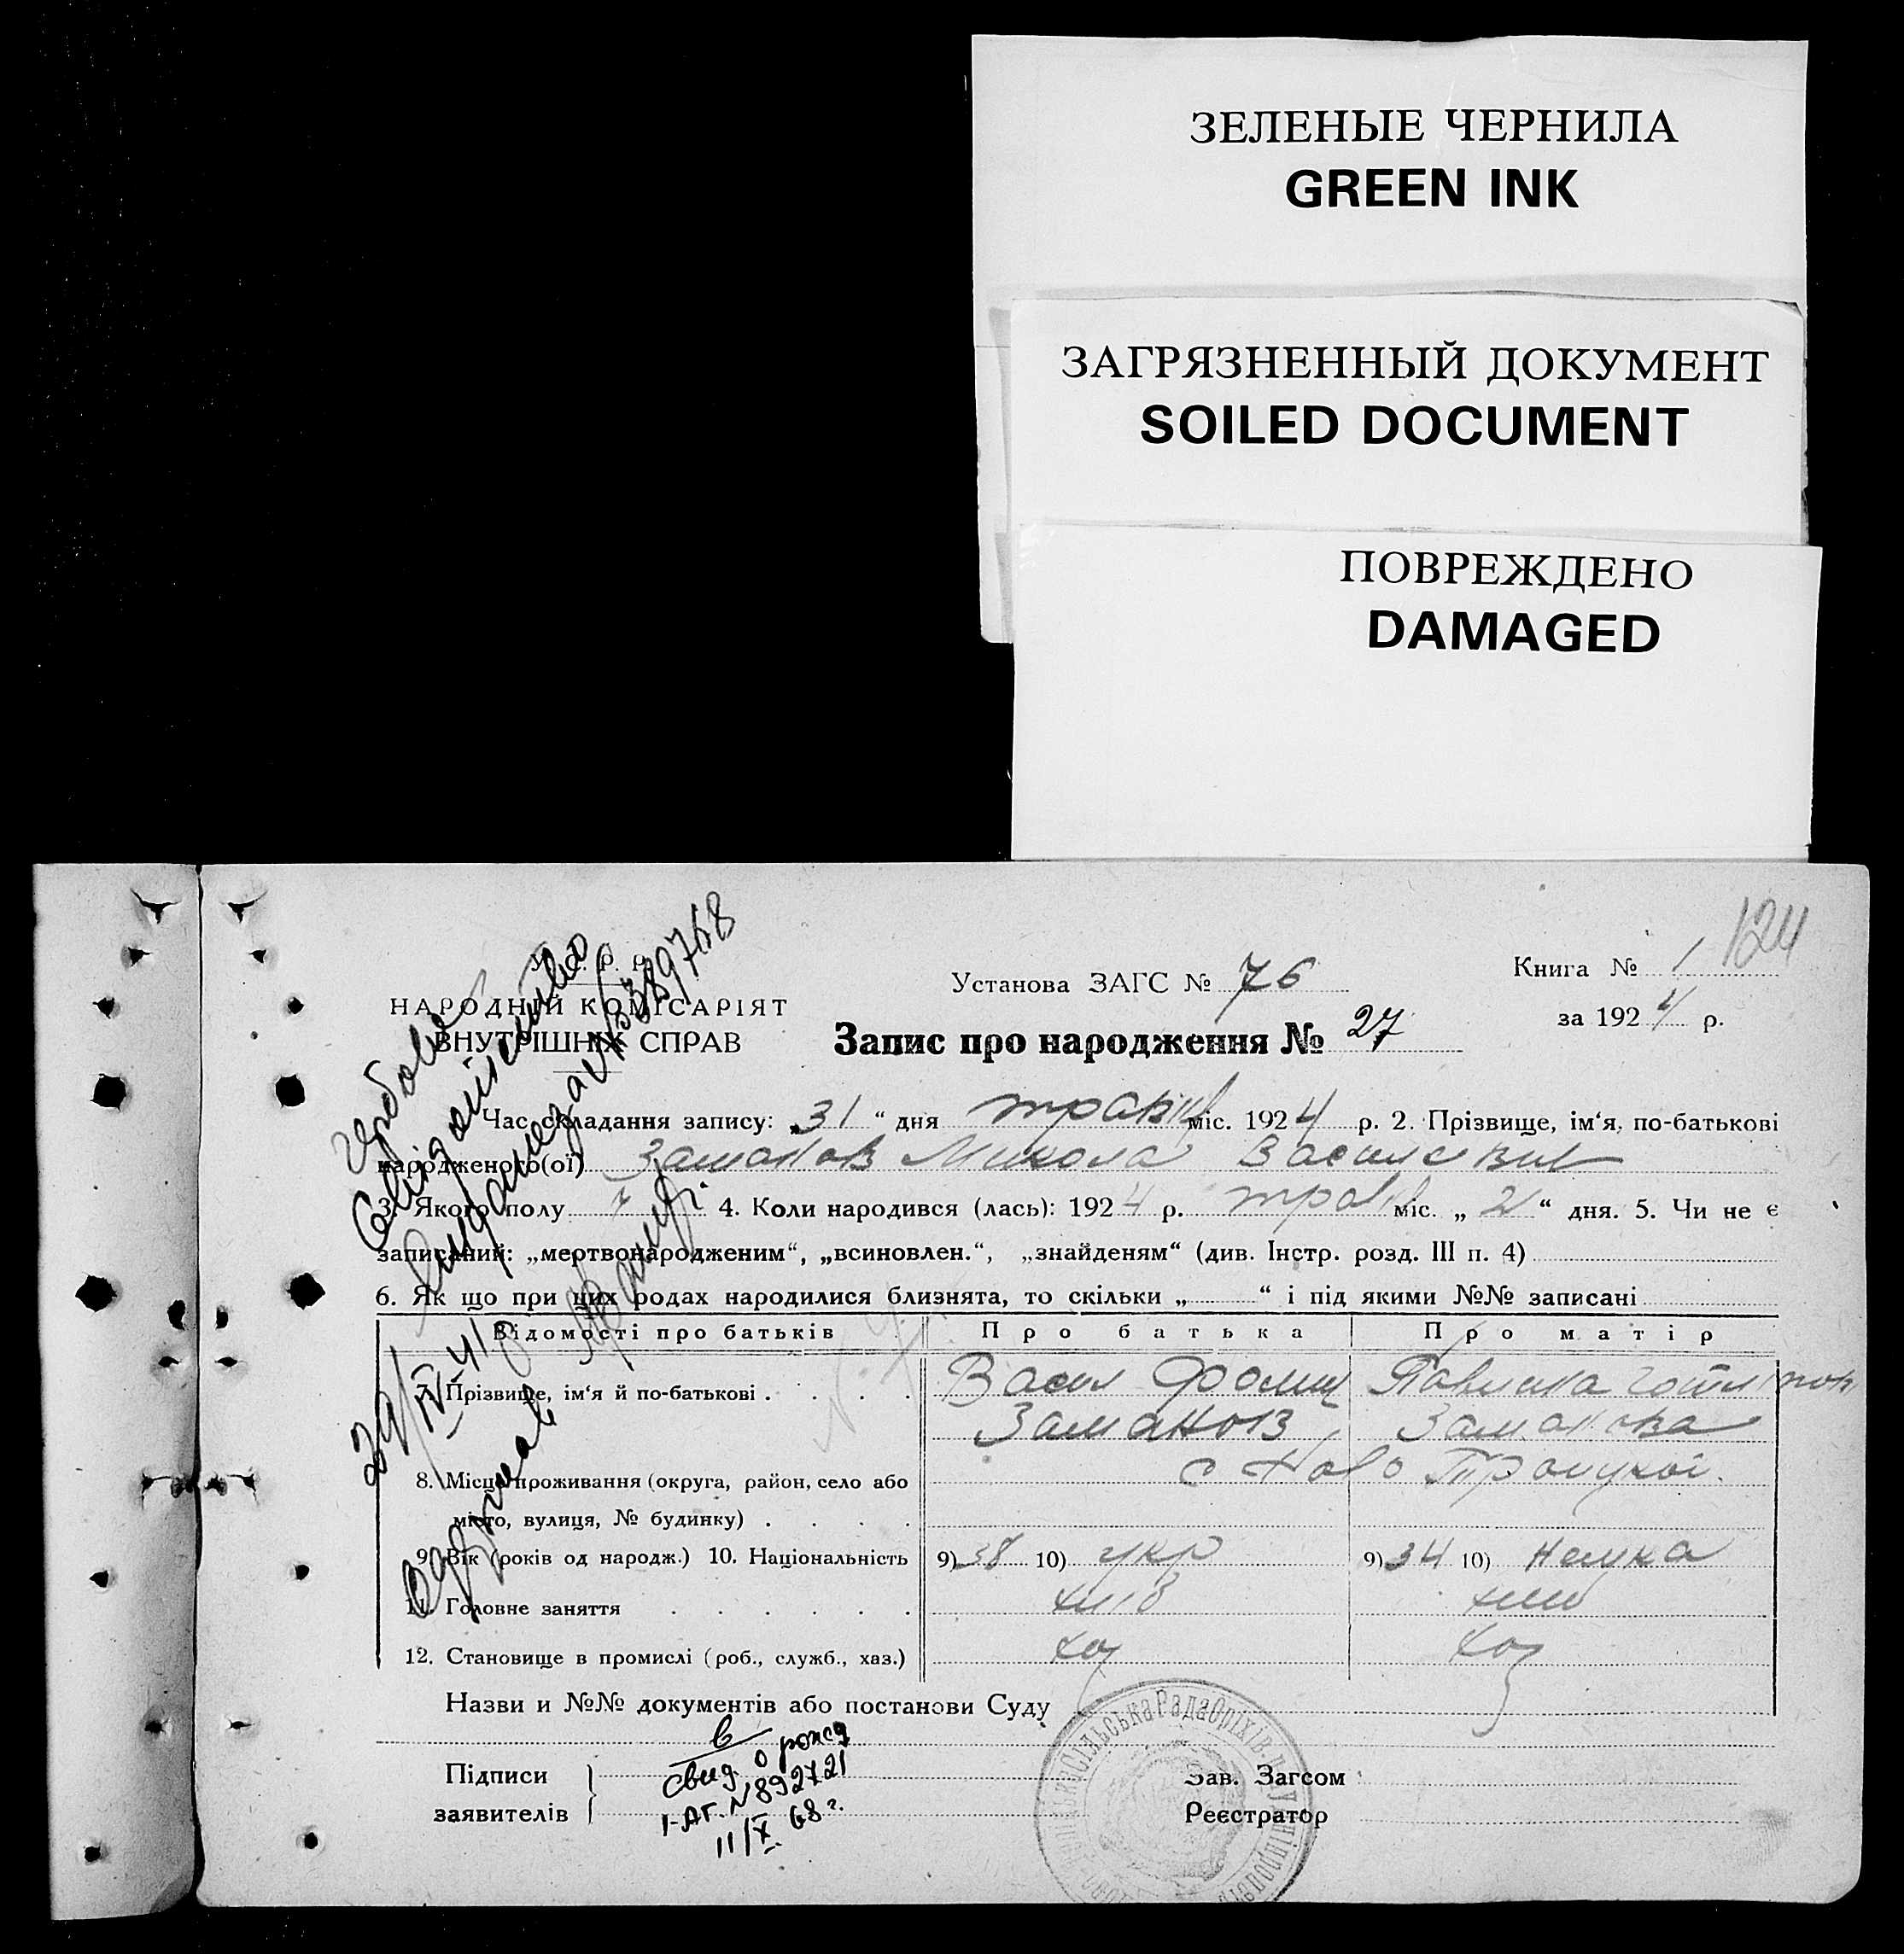 ЗЕЛЕНЫЕ ЧЕРНИЛА
GREEN INK
ЗАГРЯЗНЕННЫЙ ДОКУМЕНТ
SOILED DOCUMENT
ПОВРЕЖДЕНО
DAMAGED
124
У. С. Р. Р.
НАРОДНІЙ КОМІСАРІЯТ
ВНУТРІШНІХ СПРАВ
Установа ЗАГС № 76
Книга № 1
за 1924 р.
Запис про народження № 27
Час складання запису: „31“ дня трав міс. 1924 р. 2. Прізвище, ім‘я, по-батькові
народженого(ої) Заманов Микола Василевич
3. Якого полу ч 4. Коли народився (лась): 1924 р. трав міс. „21“ дня. 5. Чи не є
записаний: „мертвонародженим“, „всиновлен.“, „знайденям“ (див. Інстр. розд. III п. 4)
6. Як що при цих родах народилися близнята, то скільки „ “ і під якими №№ записані
Відомості про батьків Про батька Про матір
7. Прізвище, ім‘я й по-батькові . . . . Васил Фомич
Заманов Заманова
8. Місце проживання (округа, район, село або с Ново Троицкой
місто, вулиця, № будинку) . . . .
9. Вік (років од народж.) 10. Національність 9) 38 10) укр 9) 34 10) немка
11. Головне заняття . . . . . . хліб хліб
12. Становище в промислі (роб., служб., хаз.) хоз хоз
Назви и №№ документів або постанови Суду
Підписи
заявителів
Зав. Загсом
Реєстратор
свид. о рожд
I-АГ. № 892721
11/X 68 г.
Свідоцтво
29/IV-41
одержав
Сільська Рада Оріхів.